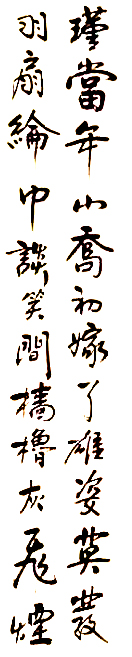 瑾當年小喬初嫁了雄姿英發
羽扇綸巾談笑間檣櫓灰飛煙